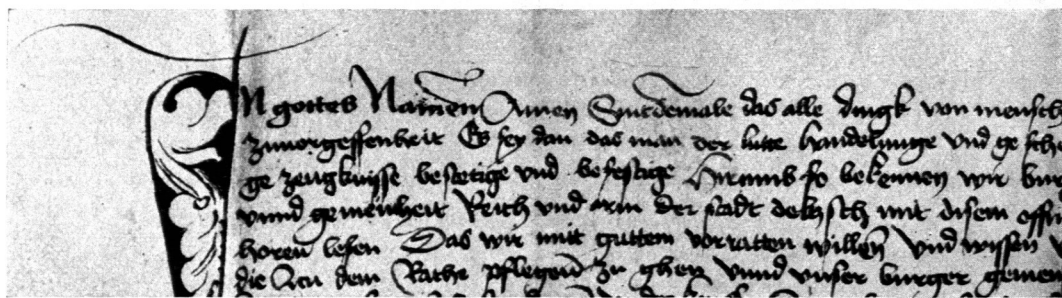 IN gottes Namen Amen Sintdemale das alle dingk von mensch
zuuorgessenheit Es sey dan das man der lutte handelunge vnd geschе
ge zeugknisse bestetige vnd befestige Hirumb so bekennen wir bur
vnnd gemeinheit Reich vnd arm der stadt deltzsch mit disem offe
horen lesen Das wir mit guttem vorratten willen vnd wissen
die Zcu dem Rathe pflegen zu ghen vnnd vnser burger gemei